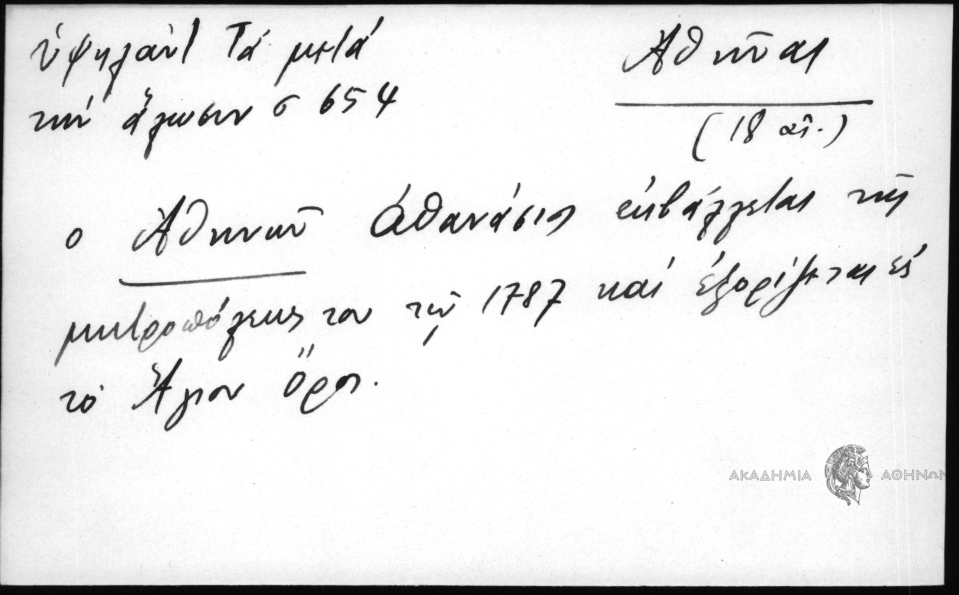 ὑψηλάντ Τά μετά
τήν ἅλωσιν σ 654
Ἀθῆναι
(18 αἰ.)
ο Ἀθηνῶν Ἀθανάσιος ἐκβάλλεται τῆς
μητροπόλεως του τῷ 1787 καί ἐξορίζεται εἰς
τό Ἅγιον Ὄρος.
ΑΚΑΔΗΜΙΑ ΑΘΗΝΩΝ